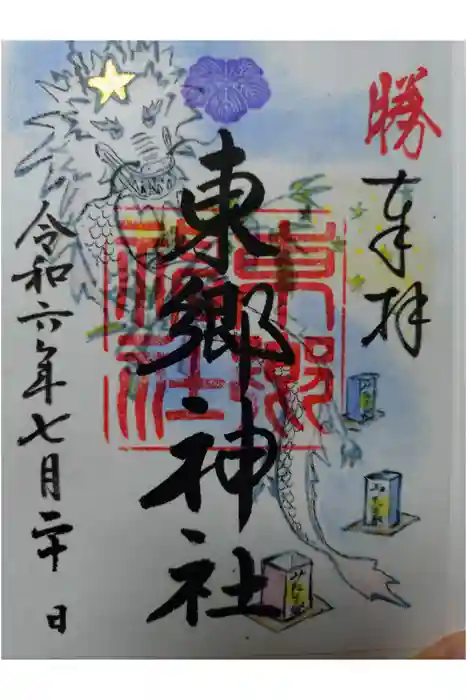 勝
奉拝
東郷神社
東郷神社
令和六年七月二十日